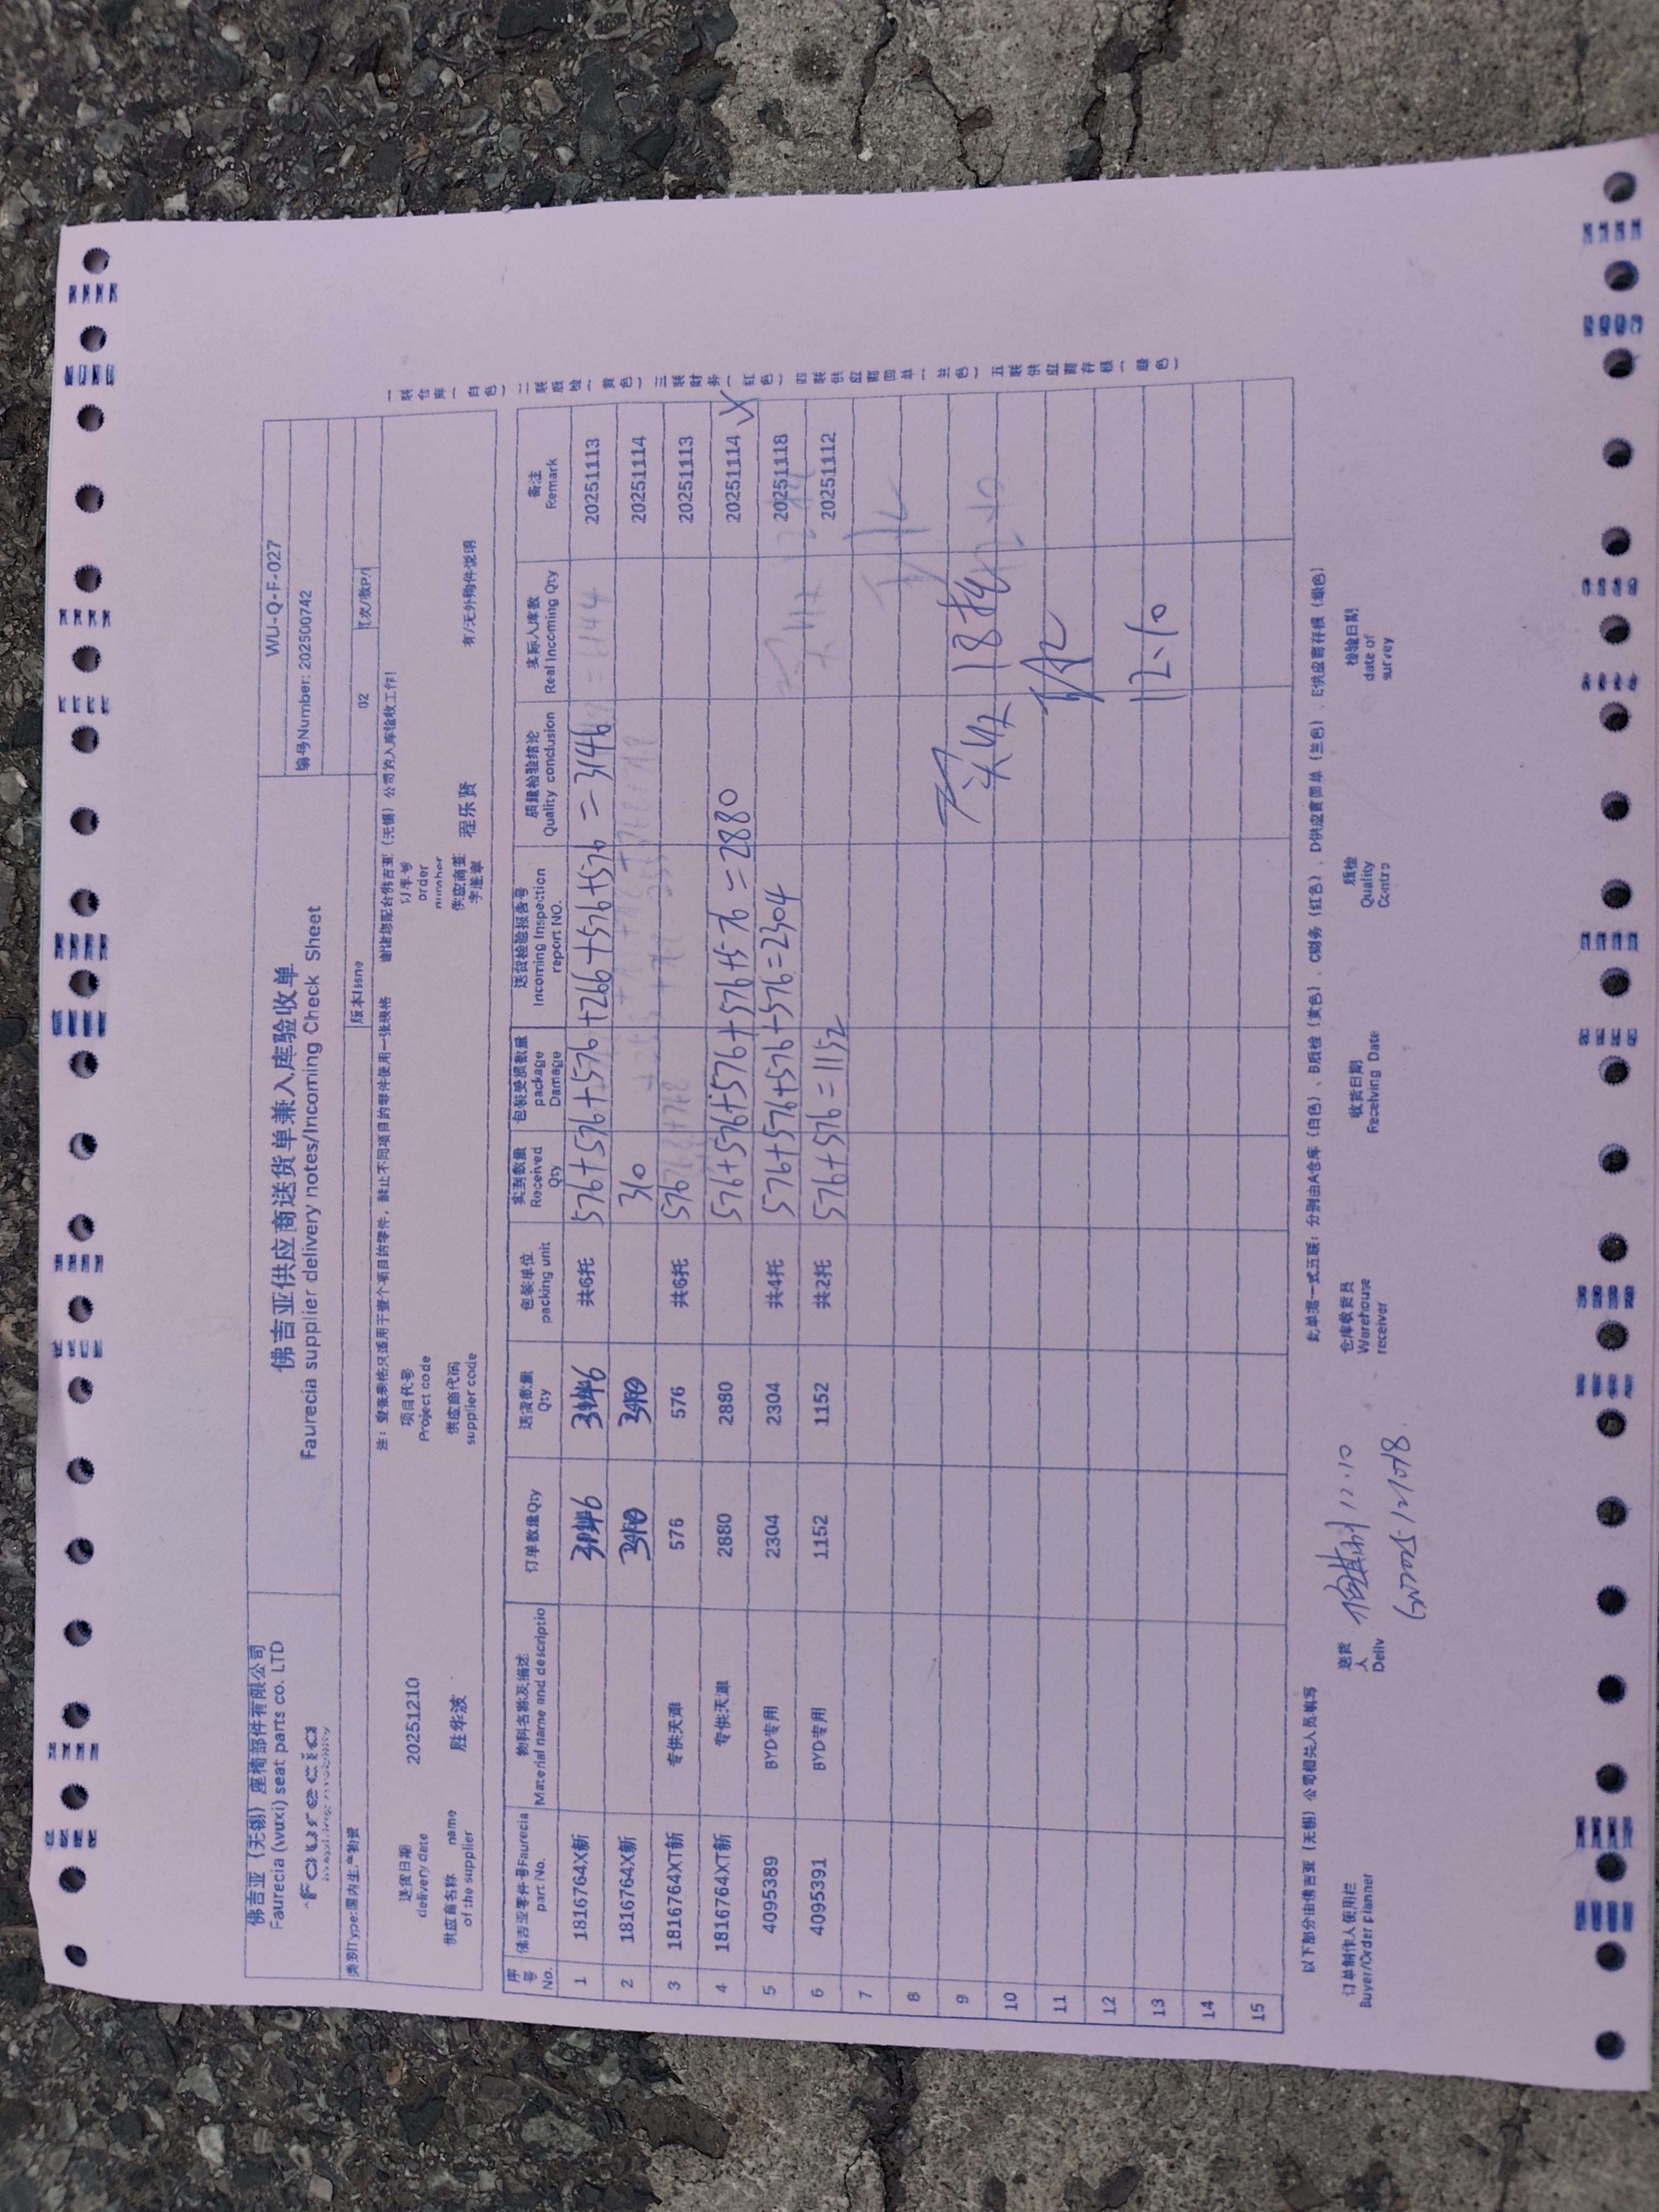 佛吉亚（无锡）座椅部件有限公司
Faurecia (wuxi) seat parts co. LTD
faurecia
佛吉亚供应商送货单兼入库验收单
Faurecia supplier delivery notes/Incoming Check Sheet
WU-Q-F-027
编号Number: 202500742
类别Type:国内生产物资
版本Issne
02
注：壹张表格只适用于壹个项目的零件，禁止不同项目的零件使用一张表格 谢谢您配合佛吉亚（无锡）公司的入库验收工作!
送货日期 delivery date 20251210
项目代号 Project code
订单号 order number
供应商名称 name of the supplier 胜华波
供应商代码 supplier code
供应商签字盖章 程乐贤
有/无外购件说明
序号 No. 佛吉亚零件号Faurecia part No. 物料名称及描述 Material name and descriptio 订单数量Qty 送货数量 Qty 包装单位 packing unit 实到数量 Received Qty 包装受损数量 package Damage 送货检验报告号 Incoming Inspection report NO. 质量检验结论 Quality conclusion 实际入库数 Real Incoming Qty 备注 Remark
1 1816764X新 共6托 576+576+576+266+576+576=3146 20251113
2 1816764X新 310 20251114
3 1816764XT新 专供天津 576 576 共6托 576 20251113
4 1816764XT新 专供天津 2880 2880 576+576+576+576+576=2880 20251114
5 4095389 BYD专用 2304 2304 共4托 576+576+576+576=2304 20251118
6 4095391 BYD专用 1152 1152 共2托 576+576=1152 20251112
7
8
9
10
11
12
13
14
15
实收18托
12.10
以下部分由佛吉亚（无锡）公司相关人员填写
此单据一式五联：分别由A仓库（白色）、B质检（黄色）、C财务（红色）、D供应商回单（兰色）、E供应商存根（绿色）
订单制作人使用栏 Buyer/Order planner
送货人 Deliv
仓库收货员 Warehouse receiver
收货日期 Receiving Date
质检 Quality Contro
检验日期 date of survey
一联仓库（白色）二联质检（黄色）三联财务（红色）四联供应商回单（兰色）五联供应商存根（绿色）